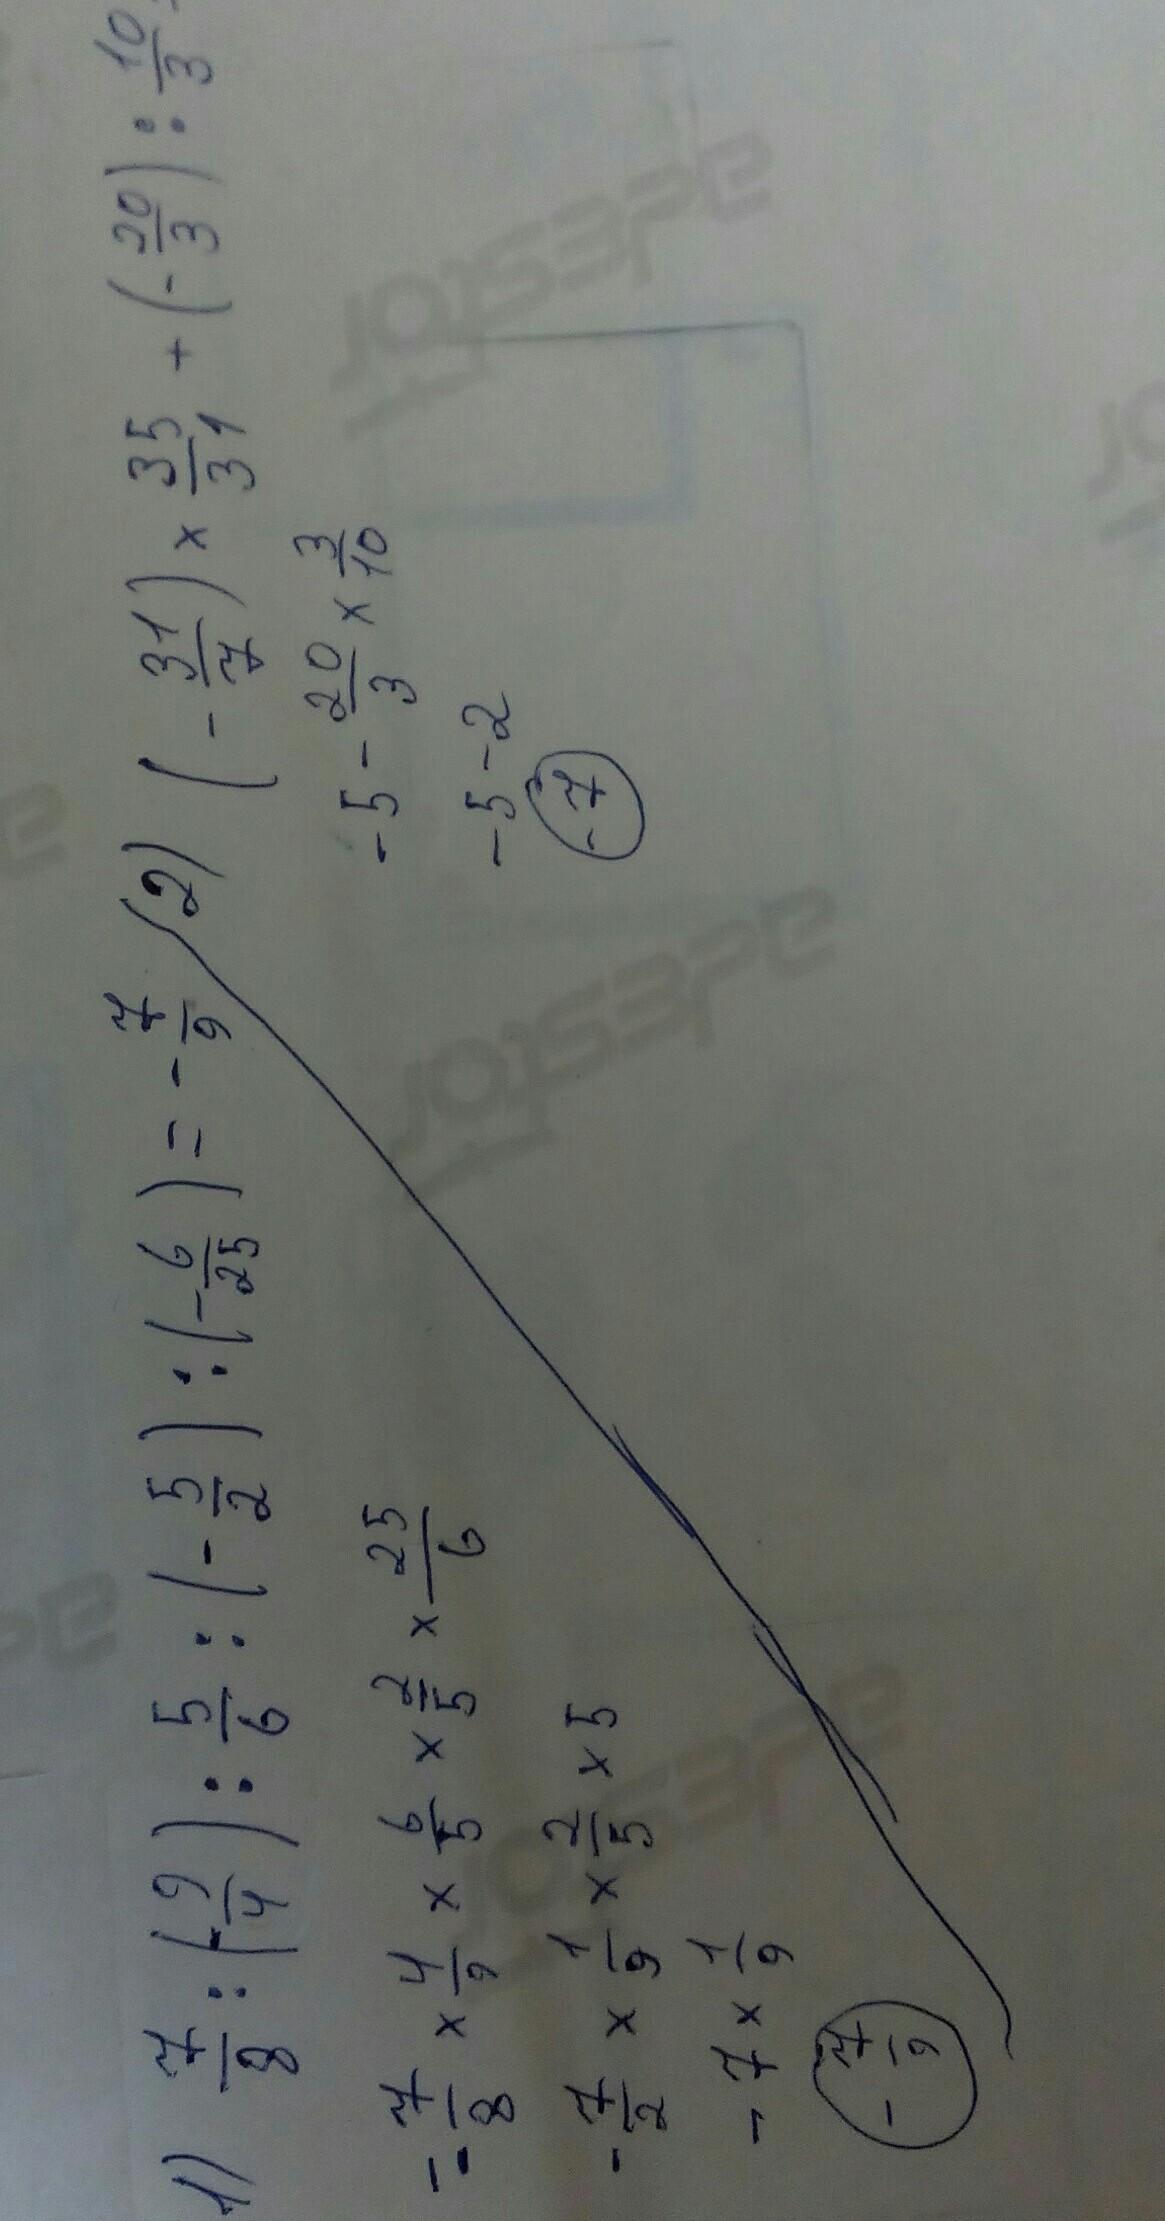 1) 7/8 : (-9/4) : 5/6 : (-5/2) : (-6/25) = -7/9
-7/8 × 4/9 × 6/5 × 2/5 × 25/6
-7/2 × 1/9 × 2/5 × 5
-7 × 1/9
-7/9
2) (-31/7) × 35/31 + (-20/3) : 10/3 =
-5 - 20/3 × 3/10
-5 - 2
-7